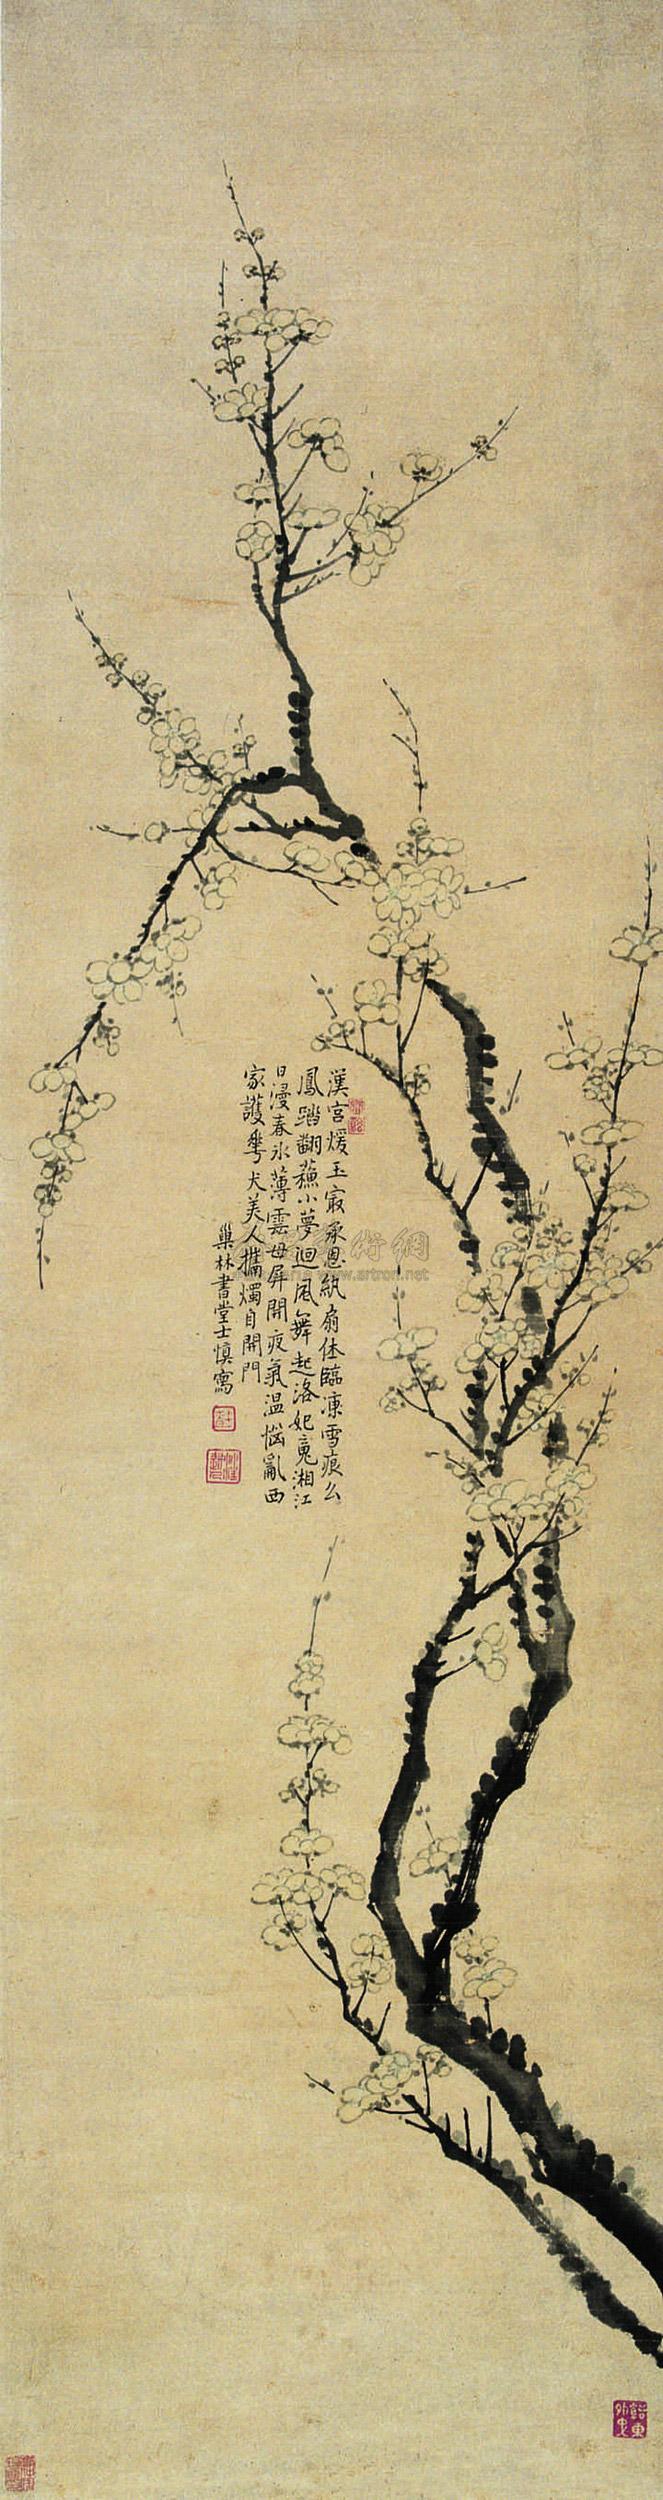 漢宮煖玉寂承恩紈扇体臨凍雪痕么
鳳踏翻蘓小夢迴風舞起洛妃䰟湘江
日漫春氷薄雲母屏開夜氣温惱亂西
家護雩犬美人攜燭自開門
巢林書堂士慎寫
www.artron.net